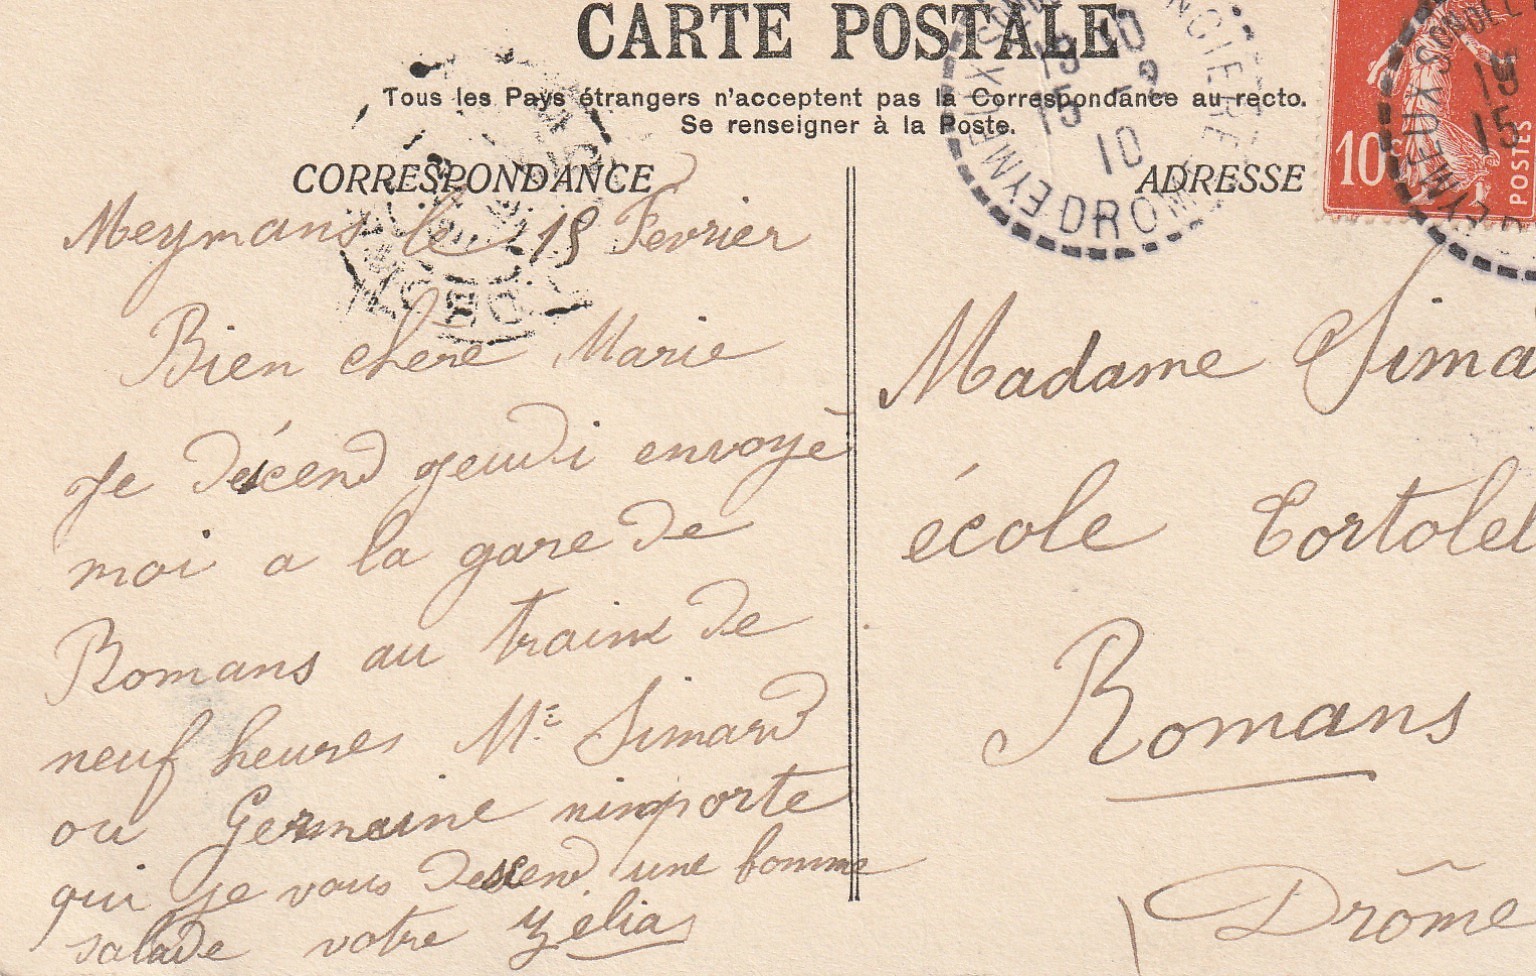 CARTE POSTALE
Tous les Pays étrangers n'acceptent pas la Correspondance au recto.
Se renseigner à la Poste.
CORRESPONDANCE
Meymans le 15 Fevrier
Bien chere Marie
Je déscend jeudi envoyè
moi a la gare de
Romans au train de
neuf heures Mr Simard
ou Germaine nimporte
qui je vous descend une bomme
salade votre Zélia
ADRESSE
Madame Sima
école Tortolel
Romans
Drôme
10c
POSTES
EYMEUX
DROME
15 -2
10
EYMEUX
15